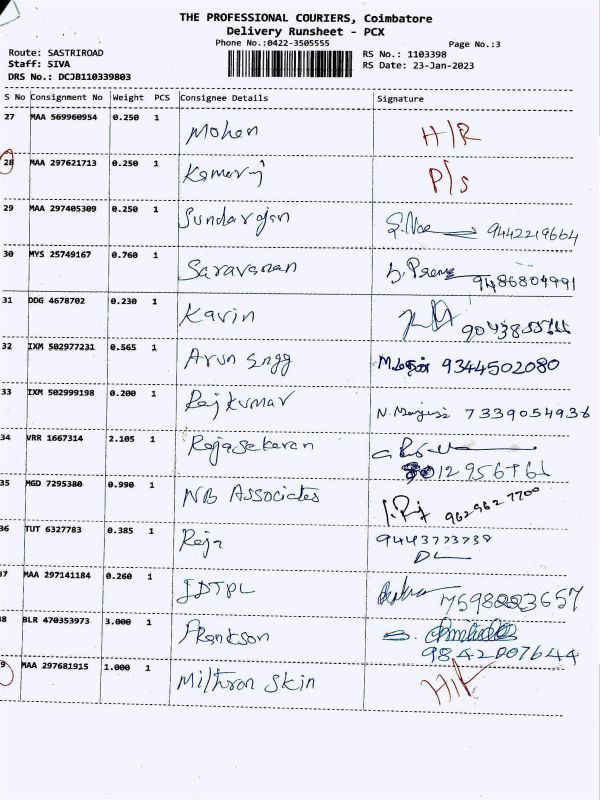 THE PROFESSIONAL COURIERS, Coimbatore
Delivery Runsheet - PCX
Phone No.:0422-3505555
Page No.:3
Route: SASTRIROAD
RS No.: 1103398
Staff: SIVA
RS Date: 23-Jan-2023
DRS No.: DCJB110339803
S No Consignment No Weight PCS Consignee Details Signature
27 MAA 569960954 0.250 1 Mohan H/R
28 MAA 297621713 0.250 1 Kamaraj P/S
29 MAA 297405309 0.250 1 Sundarajan 9442219664
30 MYS 25749167 0.760 1 Saravanan 9486804991
31 DDG 4678702 0.230 1 Kavin
32 IXM 502977231 0.565 1 Arun Engg 9344502080
33 IXM 502999198 0.200 1 Rajkumar 7339054936
34 VRR 1667314 2.105 1 Rajasekaran
35 MGD 7295380 0.990 1 NB Associates 962 962 7700
36 TUT 6327783 0.385 1 Raja 9443773738
37 MAA 297141184 0.260 1
38 BLR 470353973 3.000 1 9842007644
9 MAA 297681915 1.000 1 Skin H/R